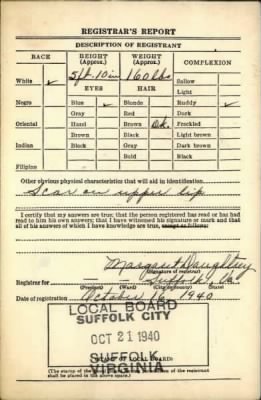 REGISTRAR'S REPORT
DESCRIPTION OF REGISTRANT
RACE
HEIGHT (Approx.)
WEIGHT (Approx.)
COMPLEXION
White ✓
5 ft. 10 in
160 lbs
Sallow
EYES
HAIR
Light
Negro
Blue ✓
Blonde
Ruddy ✓
Gray
Red
Dark
Oriental
Hazel
Brown Dk.
Freckled
Brown
Black
Light brown
Indian
Black
Gray
Dark brown
Bald
Black
Filipino
Other obvious physical characteristics that will aid in identification
Scar on upper lip
I certify that my answers are true; that the person registered has read or has had
read to him his own answers; that I have witnessed his signature or mark and that
all of his answers of which I have knowledge are true, except as follows:
Margaret Daughtrey
(Signature of registrar)
Registrar for Suffolk, Va.
(Precinct) (Ward) (City or county) (State)
Date of registration October 16, 1940
LOCAL BOARD
SUFFOLK CITY
OCT 21 1940
SUFFOLK
VIRGINIA
(STAMP OF LOCAL BOARD)
of the registrant
shall be placed in the above space.)